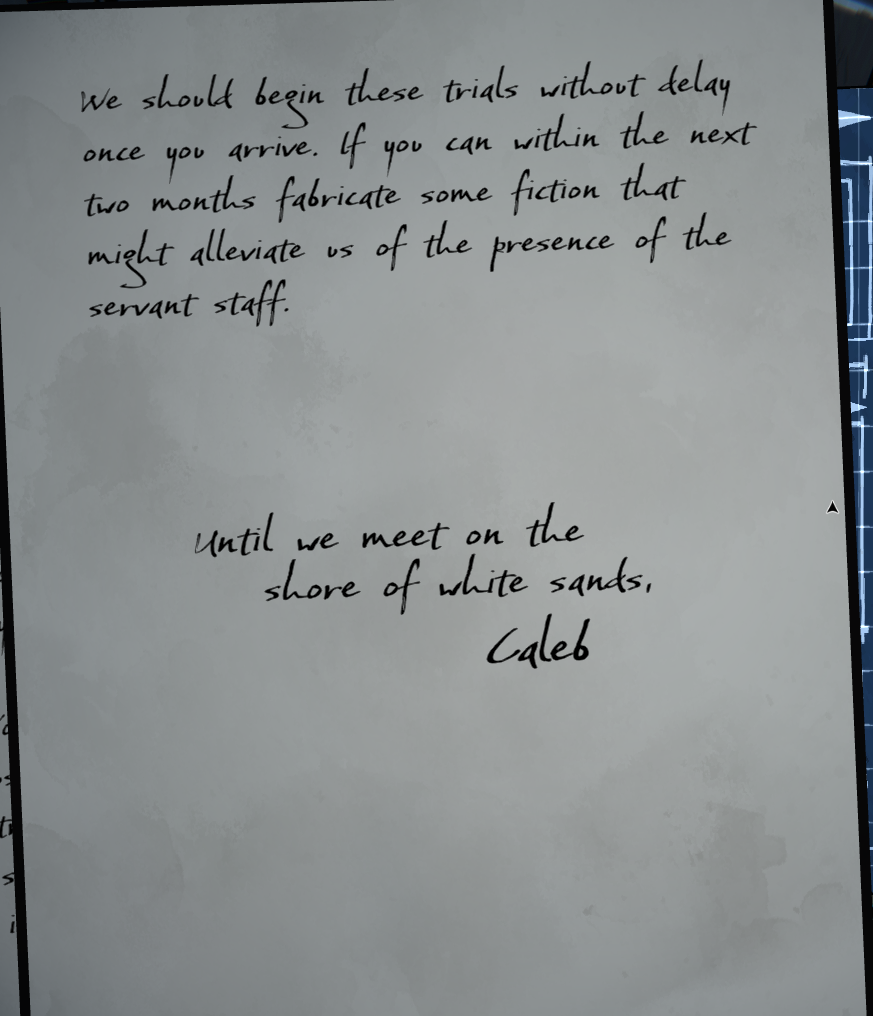 We should begin these trials without delay
once you arrive. If you can within the next
two months fabricate some fiction that
might alleviate us of the presence of the
servant staff.
Until we meet on the
shore of white sands,
Caleb